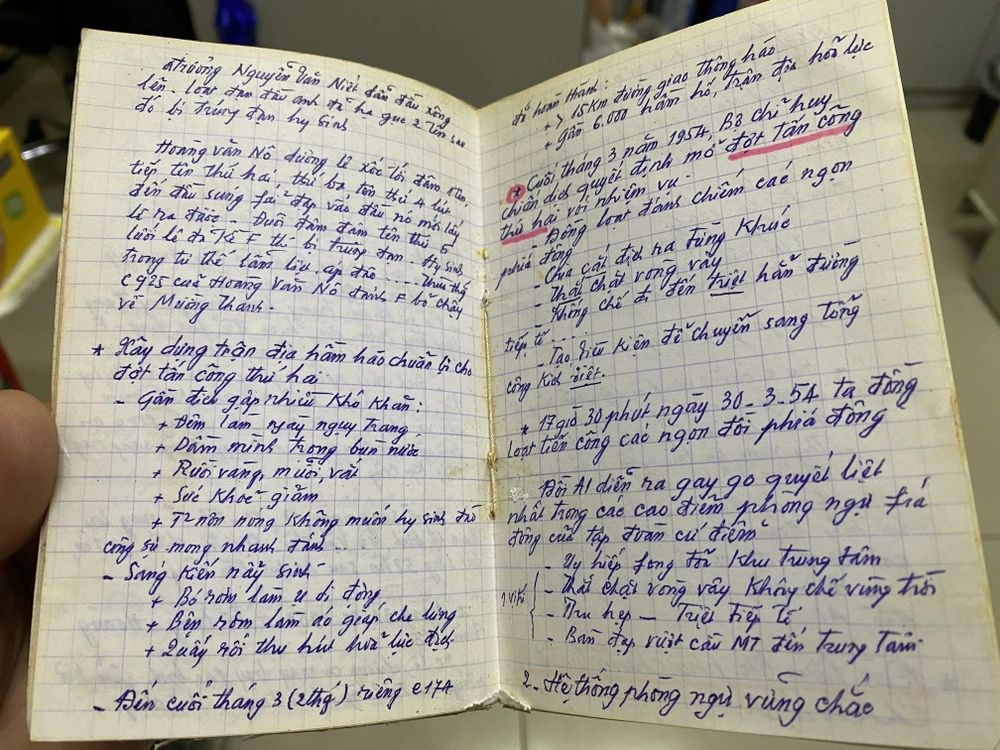 trưởng Nguyễn Văn Niết dẫn đầu xông
lên. Loạt đạn đầu anh đã hạ gục 2 tên sau
đó bị trúng đạn hy sinh
Hoàng Văn Nô dương lê xốc tới đâm
tiếp tên thứ hai, thứ ba tên thứ 4 lút
đến đầu súng fải đạp vào đầu nó mới lấy
lê ra được. Đuổi đâm tên thứ 5
lưỡi lê đã kề F thì bị trúng đạn. Hy sinh
trong tư thế lẫm liệt áp đảo ....
C925 của Hoàng Văn Nô đánh F bỏ chạy
về Mường Thanh.
* Xây dựng trận địa hầm hào chuẩn bị cho
đợt tấn công thứ hai.
- Gần địch gặp nhiều khó khăn:
+ Đêm làm ngày ngụy trang
+ Dầm mình trong bùn nước
+ Ruồi vàng, muỗi, vắt
+ Sức khoẻ giảm
+ T² nôn nóng không muốn hy sinh
công sự mong nhanh đánh ...
- Sáng kiến nẩy sinh
+ Bó rơm làm ụ di động
+ Bện rơm làm áo giáp che lưng
+ Quấy rối thu hút hoả lực địch
- Đến cuối tháng 3 (2thg) riêng e174
đã hoàn thành:
+ > 15 Km đường giao thông hào
+ Gần 6.000 hầm hố, trận địa hoả lực
* Cuối tháng 3 năm 1954, Bộ chỉ huy
chiến dịch quyết định mở đợt tấn công
thứ hai với nhiệm vụ.
- Đồng loạt đánh chiếm các ngọn
phía đông
- Chia cắt địch ra từng khúc
- Thắt chặt vòng vây
- Khống chế đi đến triệt hẳn đường
tiếp tế ....
- Tạo điều kiện để chuyển sang tổng
công kích diệt.
* 17 giờ 30 phút ngày 30-3-54 ta đồng
loạt tiến công các ngọn đồi phía đông
Đồi A1 diễn ra gay go quyết liệt
nhất trong các cao điểm phòng ngự fía
đông của tập đoàn cứ điểm
- Uy hiếp Khu trung tâm
1 vị trí { - Thắt chặt vòng vây Khống chế vùng trời
- Thu hẹp - Triệt tiếp tế
- Bàn đạp vượt cầu MT đến Trung Tâm
2- Hệ thống phòng ngự vững chắc